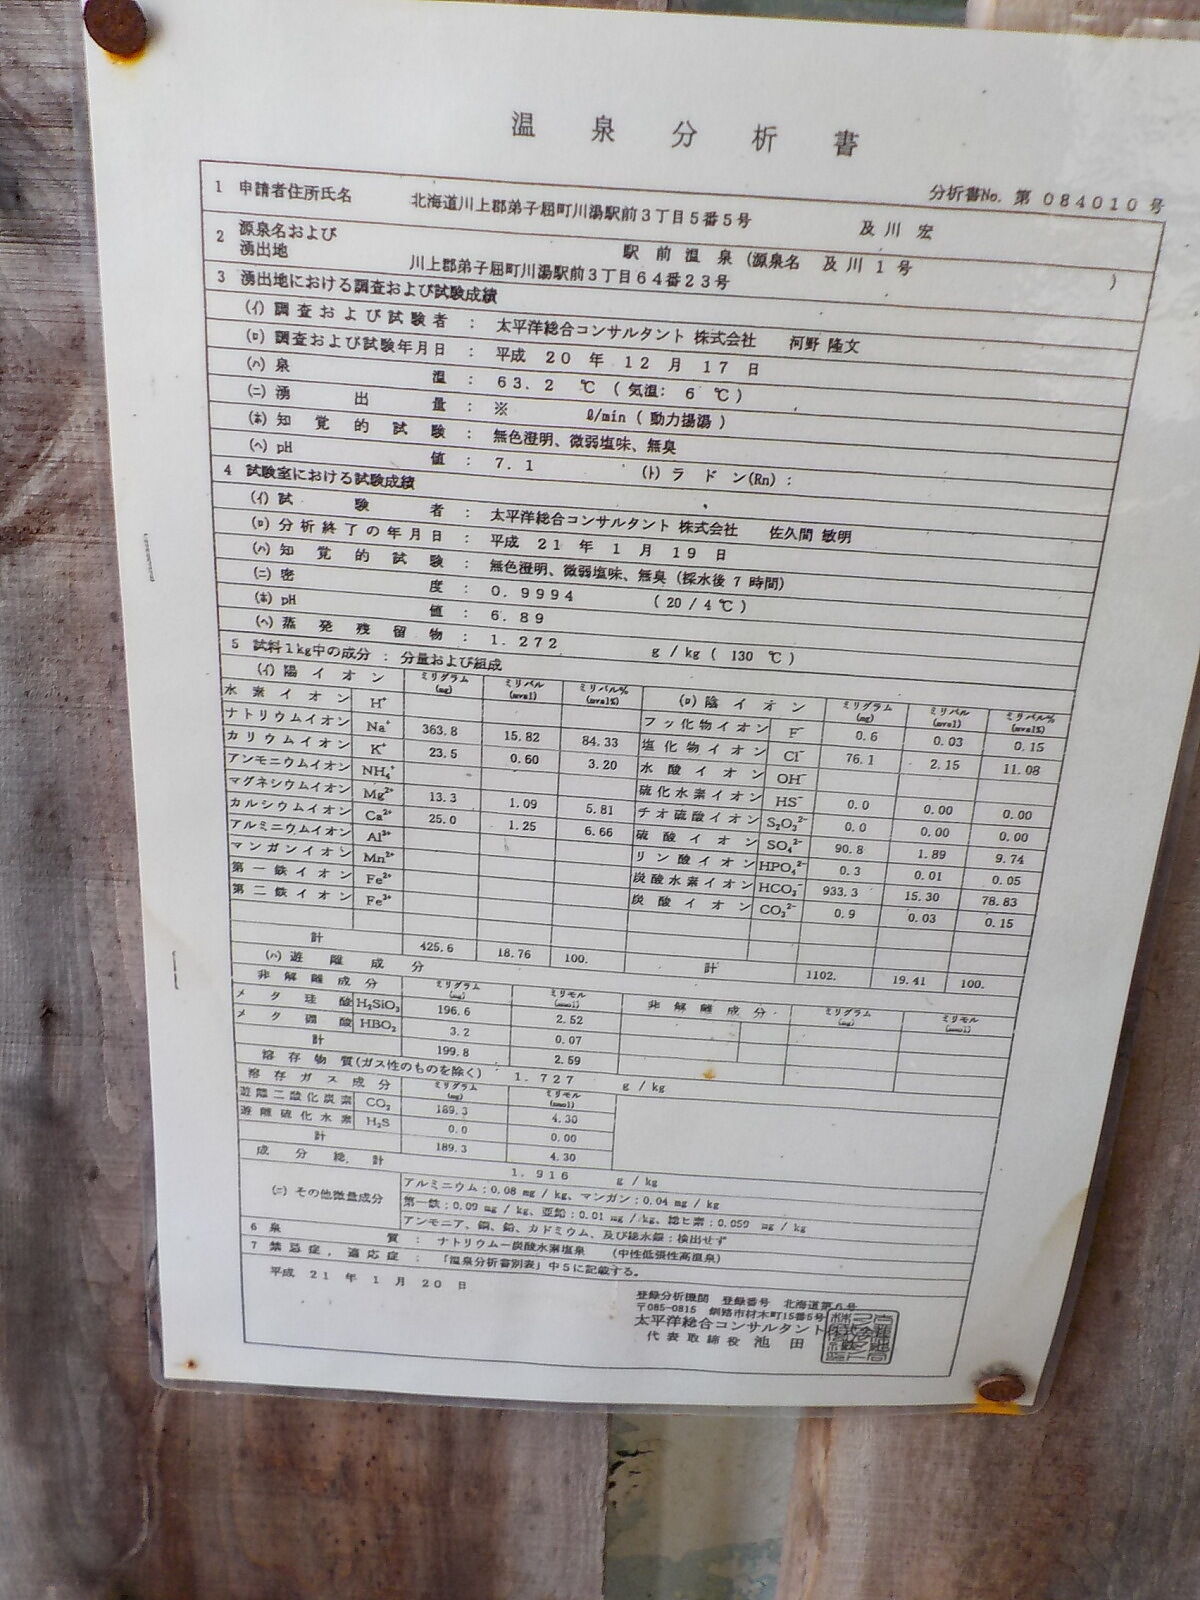 温泉分析書
分析書No. 第 084010 号
1 申請者住所氏名 北海道川上郡弟子屈町川湯駅前3丁目5番5号 及川 宏
2 源泉名および湧出地 駅前温泉 (源泉名 及川1号 )
川上郡弟子屈町川湯駅前3丁目64番23号
3 湧出地における調査および試験成績
(イ) 調査および試験者 : 太平洋総合コンサルタント 株式会社 河野 隆文
(ロ) 調査および試験年月日 : 平成 20 年 12 月 17 日
(ハ) 泉温 : 63.2 ℃ ( 気温: 6 ℃ )
(ニ) 湧出量 : ※ ℓ/min ( 動力揚湯 )
(ホ) 知覚的試験 : 無色澄明、微弱塩味、無臭
(ヘ) pH値 : 7.1 (ト) ラドン(Rn) :
4 試験室における試験成績
(イ) 試験者 : 太平洋総合コンサルタント 株式会社 佐久間 敏明
(ロ) 分析終了の年月日 : 平成 21 年 1 月 19 日
(ハ) 知覚的試験 : 無色澄明、微弱塩味、無臭 (採水後 7 時間)
(ニ) 密度 : 0.9994 ( 20 / 4℃ )
(ホ) pH値 : 6.89
(ヘ) 蒸発残留物 : 1.272 g / kg ( 130 ℃ )
5 試料1kg中の成分 : 分量および組成
(イ) 陽イオン ミリグラム (mg) ミリバル (mval) ミリバル% (mval%) (ロ) 陰イオン ミリグラム (mg) ミリバル (mval) ミリバル% (mval%)
水素イオン H⁺ フッ化物イオン F⁻ 0.6 0.03 0.15
ナトリウムイオン Na⁺ 363.8 15.82 84.33 塩化物イオン Cl⁻ 76.1 2.15 11.08
カリウムイオン K⁺ 23.5 0.60 3.20 水酸イオン OH⁻
アンモニウムイオン NH₄⁺ 硫化水素イオン HS⁻ 0.0 0.00 0.00
マグネシウムイオン Mg²⁺ 13.3 1.09 5.81 チオ硫酸イオン S₂O₃²⁻ 0.0 0.00 0.00
カルシウムイオン Ca²⁺ 25.0 1.25 6.66 硫酸イオン SO₄²⁻ 90.8 1.89 9.74
アルミニウムイオン Al³⁺ リン酸イオン HPO₄²⁻ 0.3 0.01 0.05
マンガンイオン Mn²⁺ 炭酸水素イオン HCO₃⁻ 933.3 15.30 78.83
第一鉄イオン Fe²⁺ 炭酸イオン CO₃²⁻ 0.9 0.03 0.15
第二鉄イオン Fe³⁺
計 425.6 18.76 100. 計 1102. 19.41 100.
(ハ) 遊離成分
非解離成分 ミリグラム (mg) ミリモル (mmol) 非解離成分 ミリグラム (mg) ミリモル (mmol)
メタ珪酸 H₂SiO₃ 196.6 2.52
メタ硼酸 HBO₂ 3.2 0.07
計 199.8 2.59
溶存物質(ガス性のものを除く) 1.727 g / kg
溶存ガス成分 ミリグラム (mg) ミリモル (mmol)
遊離二酸化炭素 CO₂ 189.3 4.30
遊離硫化水素 H₂S 0.0 0.00
計 189.3 4.30
成分総計 1.916 g / kg
(ニ) その他微量成分 アルミニウム:0.08 mg / kg、マンガン:0.04 mg / kg
第一鉄:0.09 mg / kg、亜鉛:0.01 mg / kg、総ヒ素:0.059 mg / kg
アンモニア、銅、鉛、カドミウム、及び総水銀:検出せず
6 泉質 : ナトリウム−炭酸水素塩泉 (中性低張性高温泉)
7 禁忌症, 適応症 : 「温泉分析書別表」中5に記載する。
平成 21 年 1 月 20 日
登録分析機関 登録番号 北海道第6号
〒085-0815 釧路市材木町15番5号
太平洋総合コンサルタント株式会社
代表取締役 池田